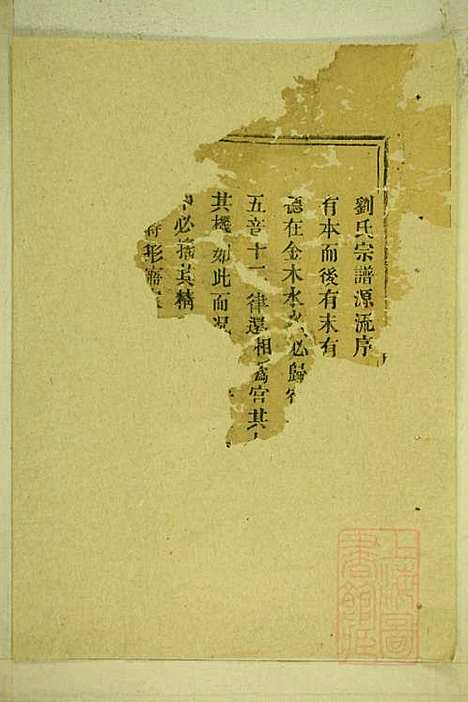 劉氏宗譜源流序
有本而後有末有
在金木水火必歸
五音十二律還相爲宮其
其機如此而況
必擒其精
形
上海圖書館藏